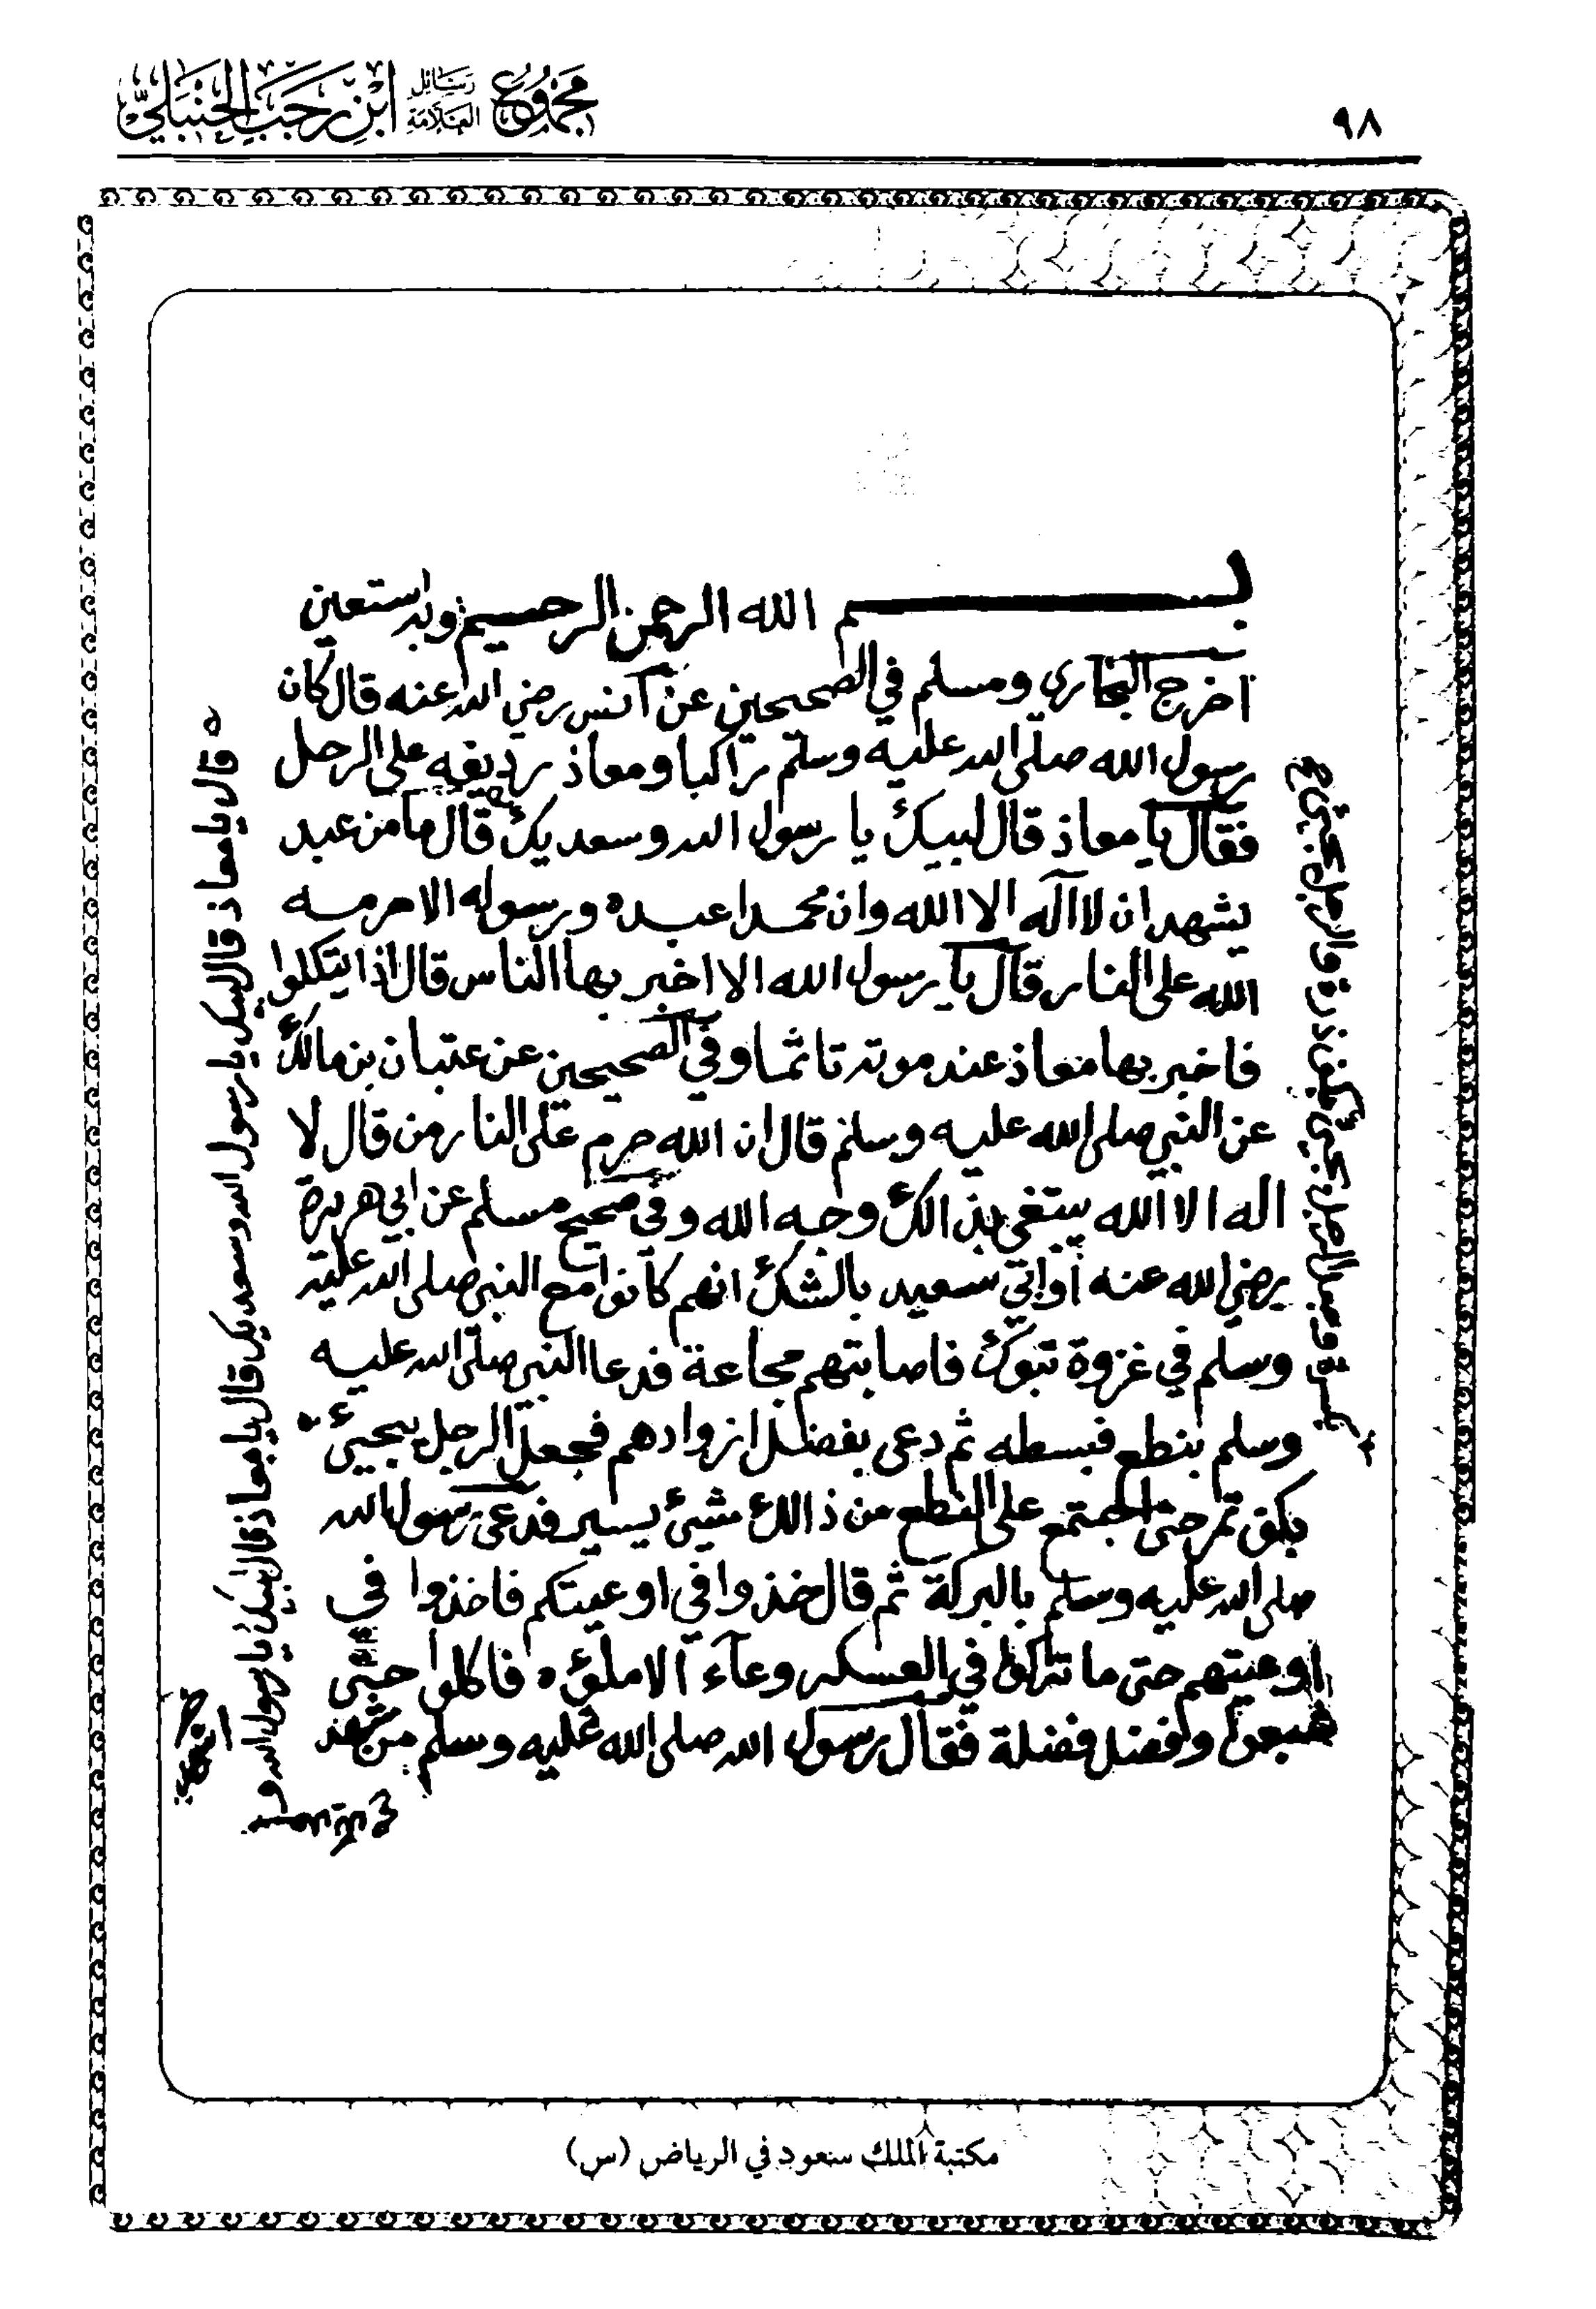 ٩٨
مجموع رسائل العلامة ابن رجب الحنبلي
بسم الله الرحمن الرحيم وبه استعين
اخرج البخاري ومسلم في الصحيحين عن انس رضي الله عنه قال كان
رسول الله صلى الله عليه وسلم راكبا ومعاذ رديفه على الرحل
فقال يا معاذ قال لبيك يا رسول الله وسعديك قال ما من عبد
يشهد ان لا اله الا الله وان محمدا عبده ورسوله الا حرمه
الله على النار قال يا رسول الله الا اخبر بها الناس قال اذا يتكلوا
فاخبر بها معاذ عند موته تاثما وفي الصحيحين عن عتبان بن مالك
عن النبي صلى الله عليه وسلم قال ان الله حرم على النار من قال لا
اله الا الله يبتغي بذالك وجه الله وفي صحيح مسلم عن ابي هريرة
رضي الله عنه أو ابي سعيد بالشك انهم كانوا مع النبي صلى الله عليه
وسلم في غزوة تبوك فاصابتهم مجاعة فدعا النبي صلى الله عليه
وسلم بنطع فبسطه ثم دعى بفضل ازوادهم فجعل الرجل يجيئ
بكف تمر حتى اجتمع على النطع من ذالك شيئ يسير فدعى رسول الله
صلى الله عليه وسلم بالبركة ثم قال خذوا في اوعيتكم فاخذوا في
اوعيتهم حتى ما تركوا في العسكر وعآء الا ملؤه فاكلوا حتى
شبعوا وفضل فضلة فقال رسول الله صلى الله عليه وسلم من شهد
قال يا معاذ قال لبيك يا رسول الله وسعديك قال يا معاذ قال لبيك يا رسول الله و
مكتبة الملك سعود في الرياض (س)